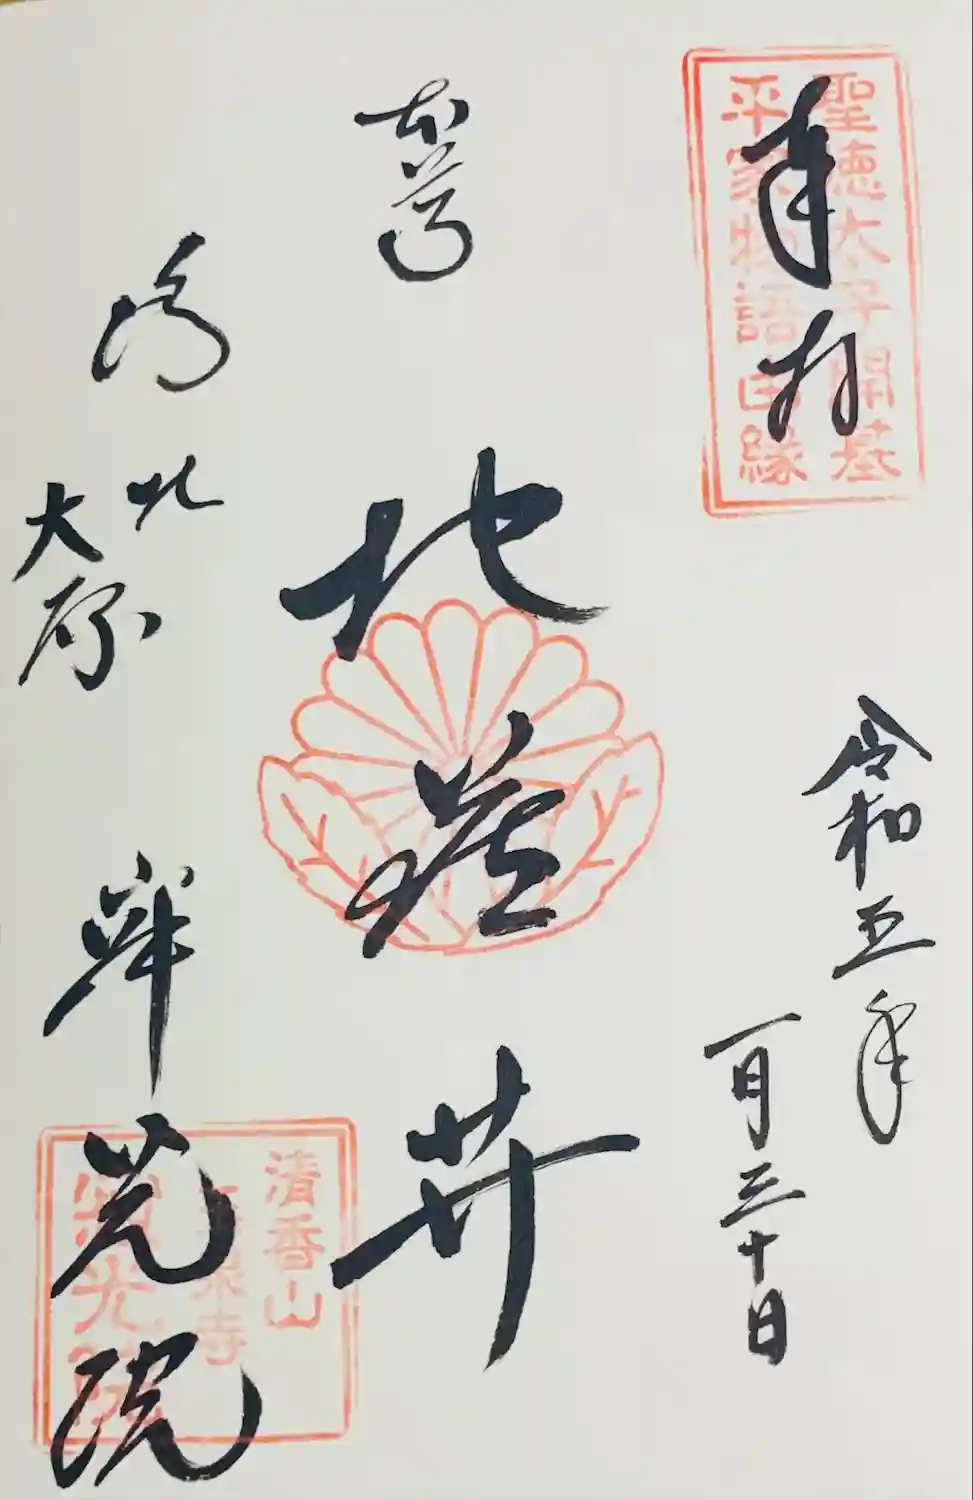 奉拝
聖徳太子開基
平家物語由縁
令和五年
一月三十日
本尊
地蔵菩
洛北
大原
寂光院
清香山
玉泉寺
寂光院